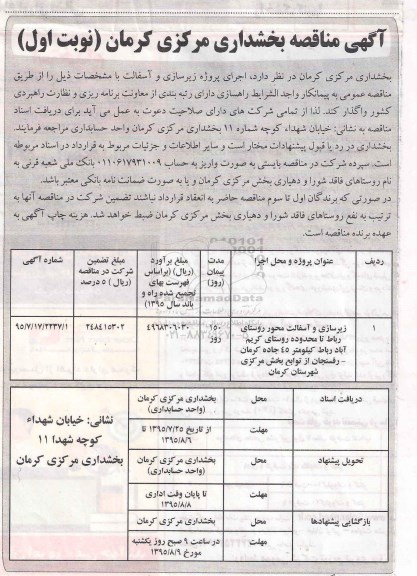 آگهی مناقصه بخشداری مرکزی کرمان (نوبت اول)
بخشداری مرکزی کرمان در نظر دارد، اجرای پروژه زیرسازی و آسفالت با مشخصات ذیل را از طریق
مناقصه عمومی به پیمانکار واجد الشرایط راهسازی دارای رتبه بندی از معاونت برنامه ریزی و نظارت راهبردی
کشور واگذار کند. لذا از تمامی شرکت های دارای صلاحیت دعوت به عمل می آید برای دریافت اسناد
مناقصه به نشانی: خیابان شهداء کوچه شماره ۱۱ بخشداری مرکزی کرمان واحد حسابداری مراجعه فرمایند.
بخشداری در رد یا قبول پیشنهادات مختار است و سایر اطلاعات و جزئیات مربوط به قرارداد در اسناد مربوطه
است. سپرده شرکت در مناقصه بایستی به صورت واریز به حساب ۰۱۱۰۶۱۷۹۳۱۰۰۹ بانک ملی شعبه قرنی به
نام روستاهای فاقد شورا و دهیاری بخش مرکزی کرمان و یا به صورت ضمانت نامه بانکی معتبر باشد.
در صورتی که برندگان اول تا سوم مناقصه حاضر به انعقاد قرارداد نباشند تضمین شرکت در مناقصه آنها به
ترتیب به نفع روستاهای فاقد شورا و دهیاری بخش مرکزی کرمان ضبط خواهد شد. هزینه چاپ آگهی به
عهده برنده مناقصه است.
ردیف
عنوان پروژه و محل اجرا
مدت پیمان (روز)
مبلغ برآورد (ریال) (براساس فهرست بهای تجمیع شده راه و باند سال ۱۳۹۵)
مبلغ تضمین شرکت در مناقصه (ریال) ۵ درصد
شماره آگهی
۱
زیرسازی و آسفالت محور روستای
رباط تا محدوده روستای کریم
آباد رباط کیلومتر ۴۵ جاده کرمان
- رفسنجان از توابع بخش مرکزی
شهرستان کرمان
۱۵۰ روز
۴۹۶۸۳۰۶۰۳۰
۲۴۸۴۱۵۳۰۲
۹۵/۷/۱۷/۲۲۳۷/۱
دریافت اسناد
محل
بخشداری مرکزی کرمان
(واحد حسابداری)
مهلت
از تاریخ ۱۳۹۵/۷/۲۵ تا
۱۳۹۵/۸/۶
تحویل پیشنهاد
محل
بخشداری مرکزی کرمان
(واحد حسابداری)
مهلت
تا پایان وقت اداری
۱۳۹۵/۸/۸
بازگشایی پیشنهادها
محل
بخشداری مرکزی کرمان
مهلت
در ساعت ۹ صبح روز یکشنبه
مورخ ۱۳۹۵/۸/۹
نشانی: خیابان شهداء
کوچه شهدا ۱۱
بخشداری مرکزی کرمان